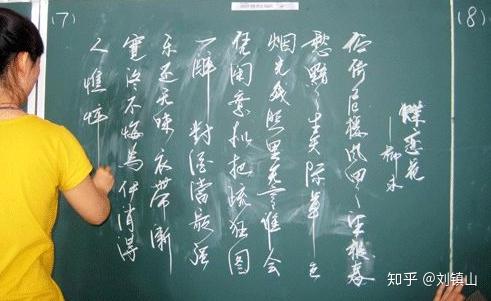 (7)
(8)
蝶恋花
—柳永
伫倚危楼风细々望极春
愁黯々生天际草色
烟光残照里无言谁会
凭阑意拟把疏狂图
一醉 對酒當歌强
乐还无味 衣带渐
寬终不悔为伊消得
人憔悴
知乎 @刘镇山